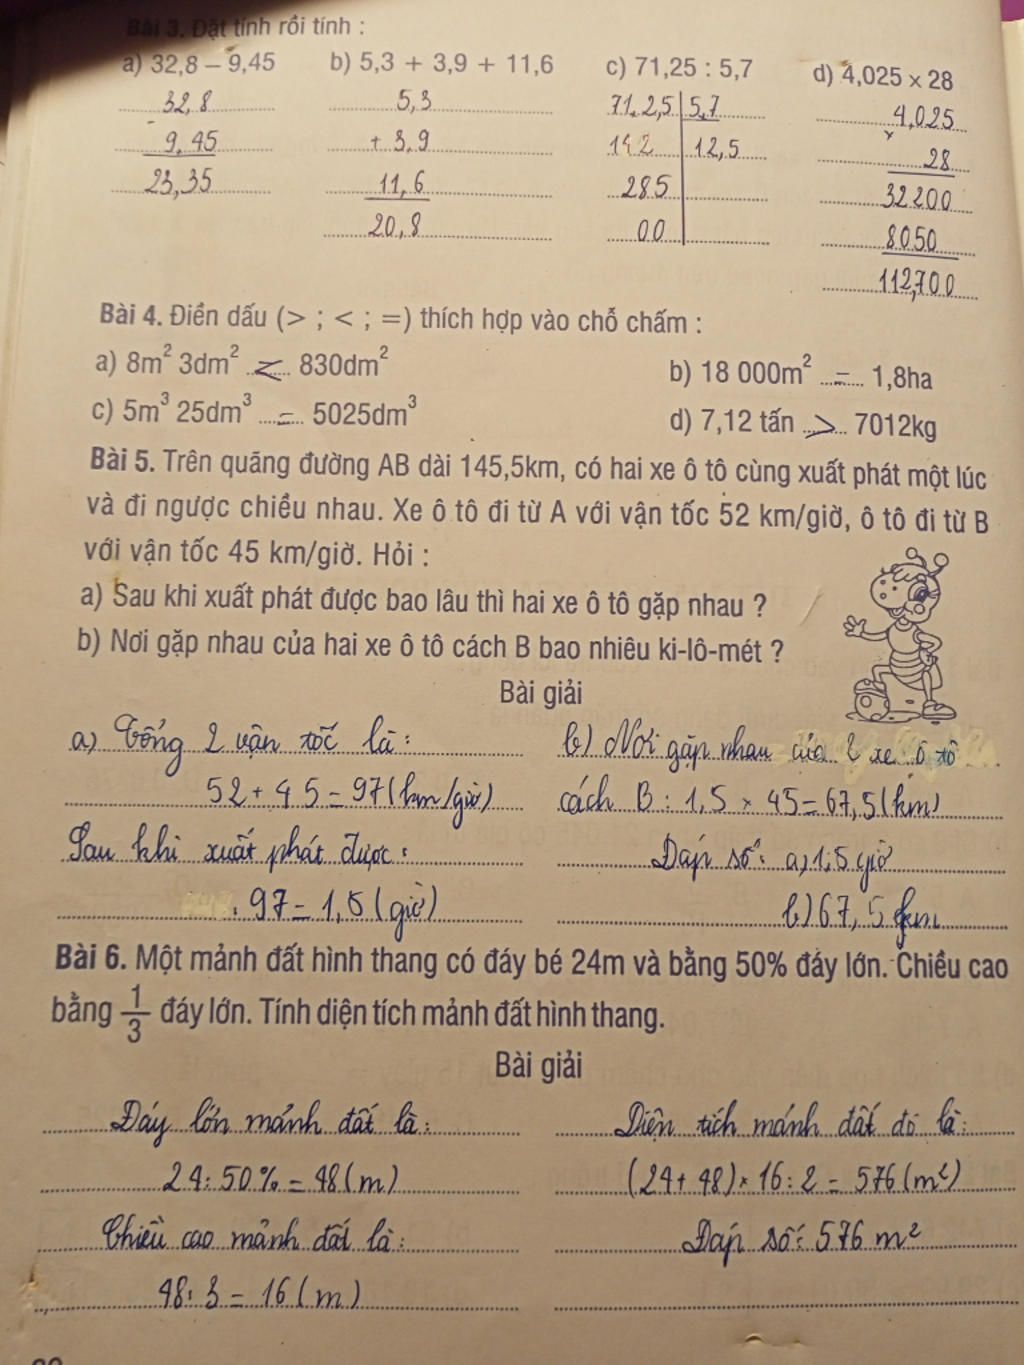 Bài 3. Đặt tính rồi tính :
a) 32,8 – 9,45 b) 5,3 + 3,9 + 11,6 c) 71,25 : 5,7 d) 4,025 × 28
32,8 5,3 71,2,5 5,7 4,025
- 9,45 + 3,9 142 12,5 × 28
23,35 11,6 285 32200
20,8 00 8050
112,700
Bài 4. Điền dấu (> ; < ; =) thích hợp vào chỗ chấm :
a) 8m² 3dm² ...<... 830dm² b) 18 000m² ...=... 1,8ha
c) 5m³ 25dm³ ...=... 5025dm³ d) 7,12 tấn ...>... 7012kg
Bài 5. Trên quãng đường AB dài 145,5km, có hai xe ô tô cùng xuất phát một lúc
và đi ngược chiều nhau. Xe ô tô đi từ A với vận tốc 52 km/giờ, ô tô đi từ B
với vận tốc 45 km/giờ. Hỏi :
a) Sau khi xuất phát được bao lâu thì hai xe ô tô gặp nhau ?
b) Nơi gặp nhau của hai xe ô tô cách B bao nhiêu ki-lô-mét ?
Bài giải
a) Tổng 2 vận tốc là :
52 + 45 = 97 (km/giờ)
Sau khi xuất phát được :
: 97 = 1,5 (giờ)
b) Nơi gặp nhau của 2 xe ô tô
cách B : 1,5 × 45 = 67,5 (km)
Đáp số : a) 1,5 giờ
b) 67,5 km
Bài 6. Một mảnh đất hình thang có đáy bé 24m và bằng 50% đáy lớn. Chiều cao
bằng 1/3 đáy lớn. Tính diện tích mảnh đất hình thang.
Bài giải
Đáy lớn mảnh đất là :
24 : 50 % = 48 (m)
Chiều cao mảnh đất là :
48 : 3 = 16 (m)
Diện tích mảnh đất đó là :
(24 + 48) × 16 : 2 = 576 (m²)
Đáp số : 576 m²